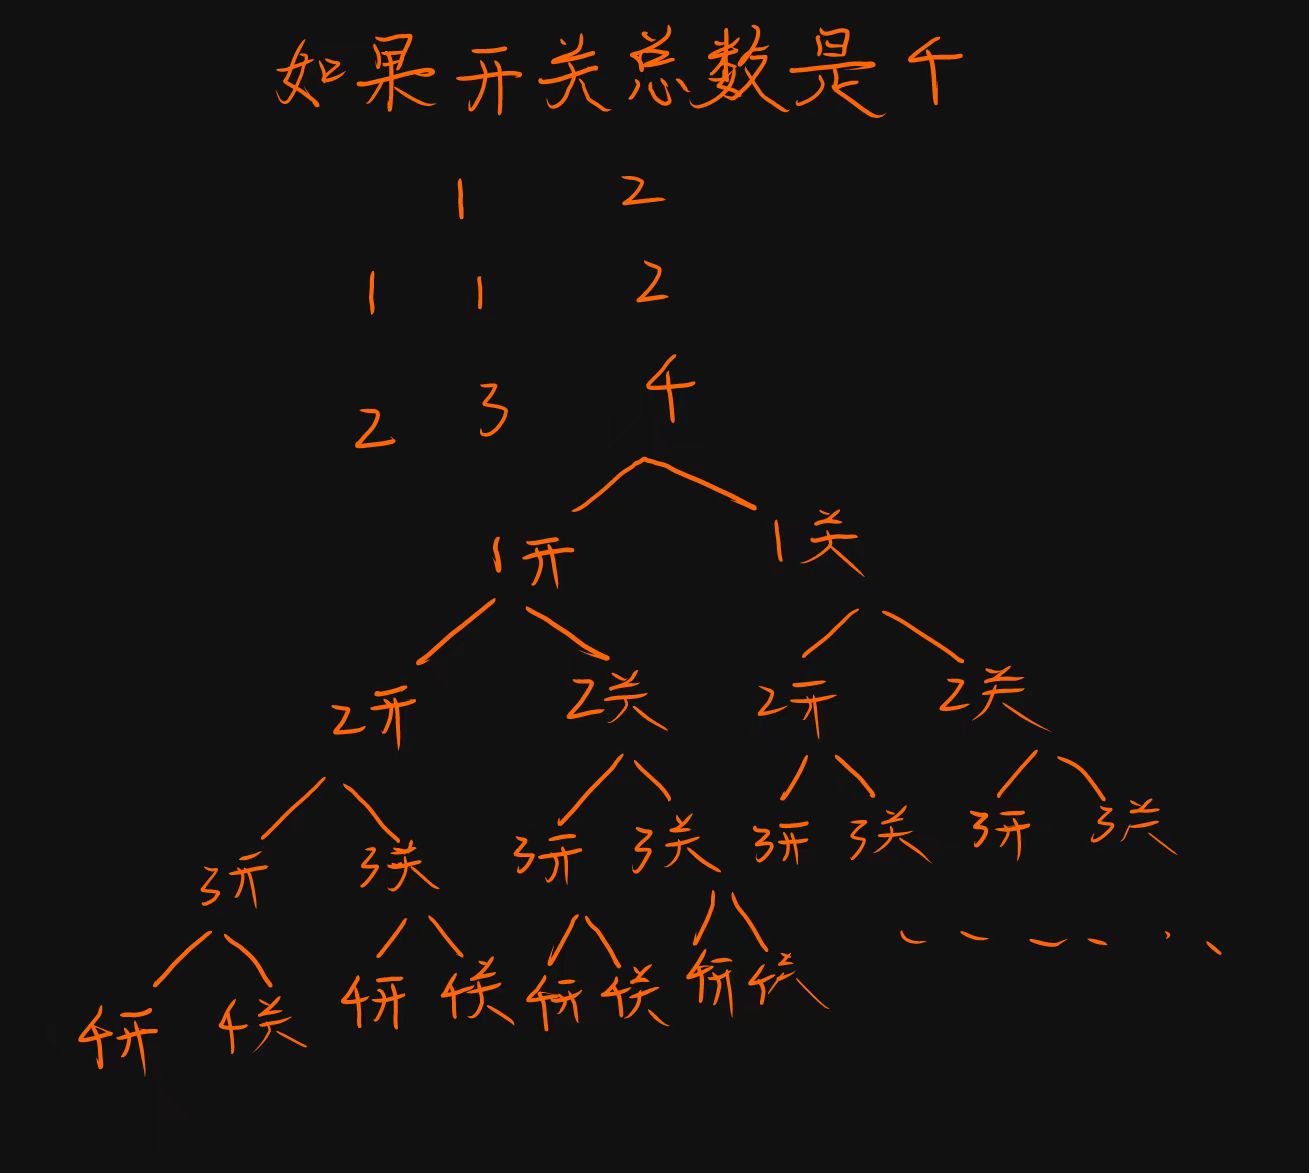 如果开关总数是4
1 2
1 1 2
2 3 4
1开 1关
2开 2关 2开 2关
3开 3关 3开 3关 3开 3关 3开 3关
4开 4关 4开 4关 4开 4关 4开 4关